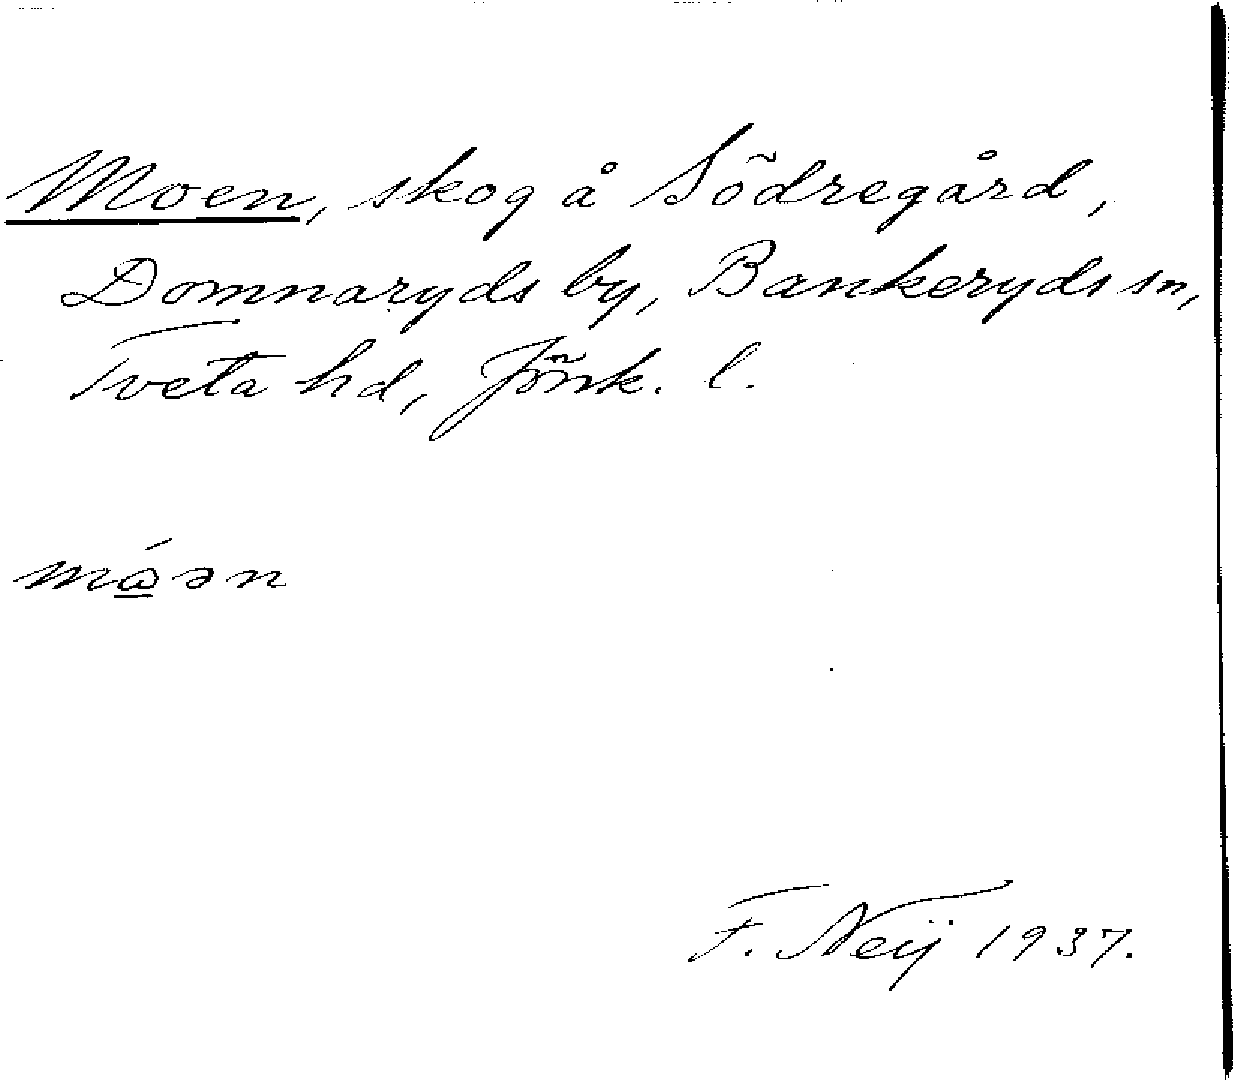 Moen, skog å Södregård,
Domnaryds by, Bankeryds sn,
Tveta hd, Jönk. l.
måən
F. Neij 1937.